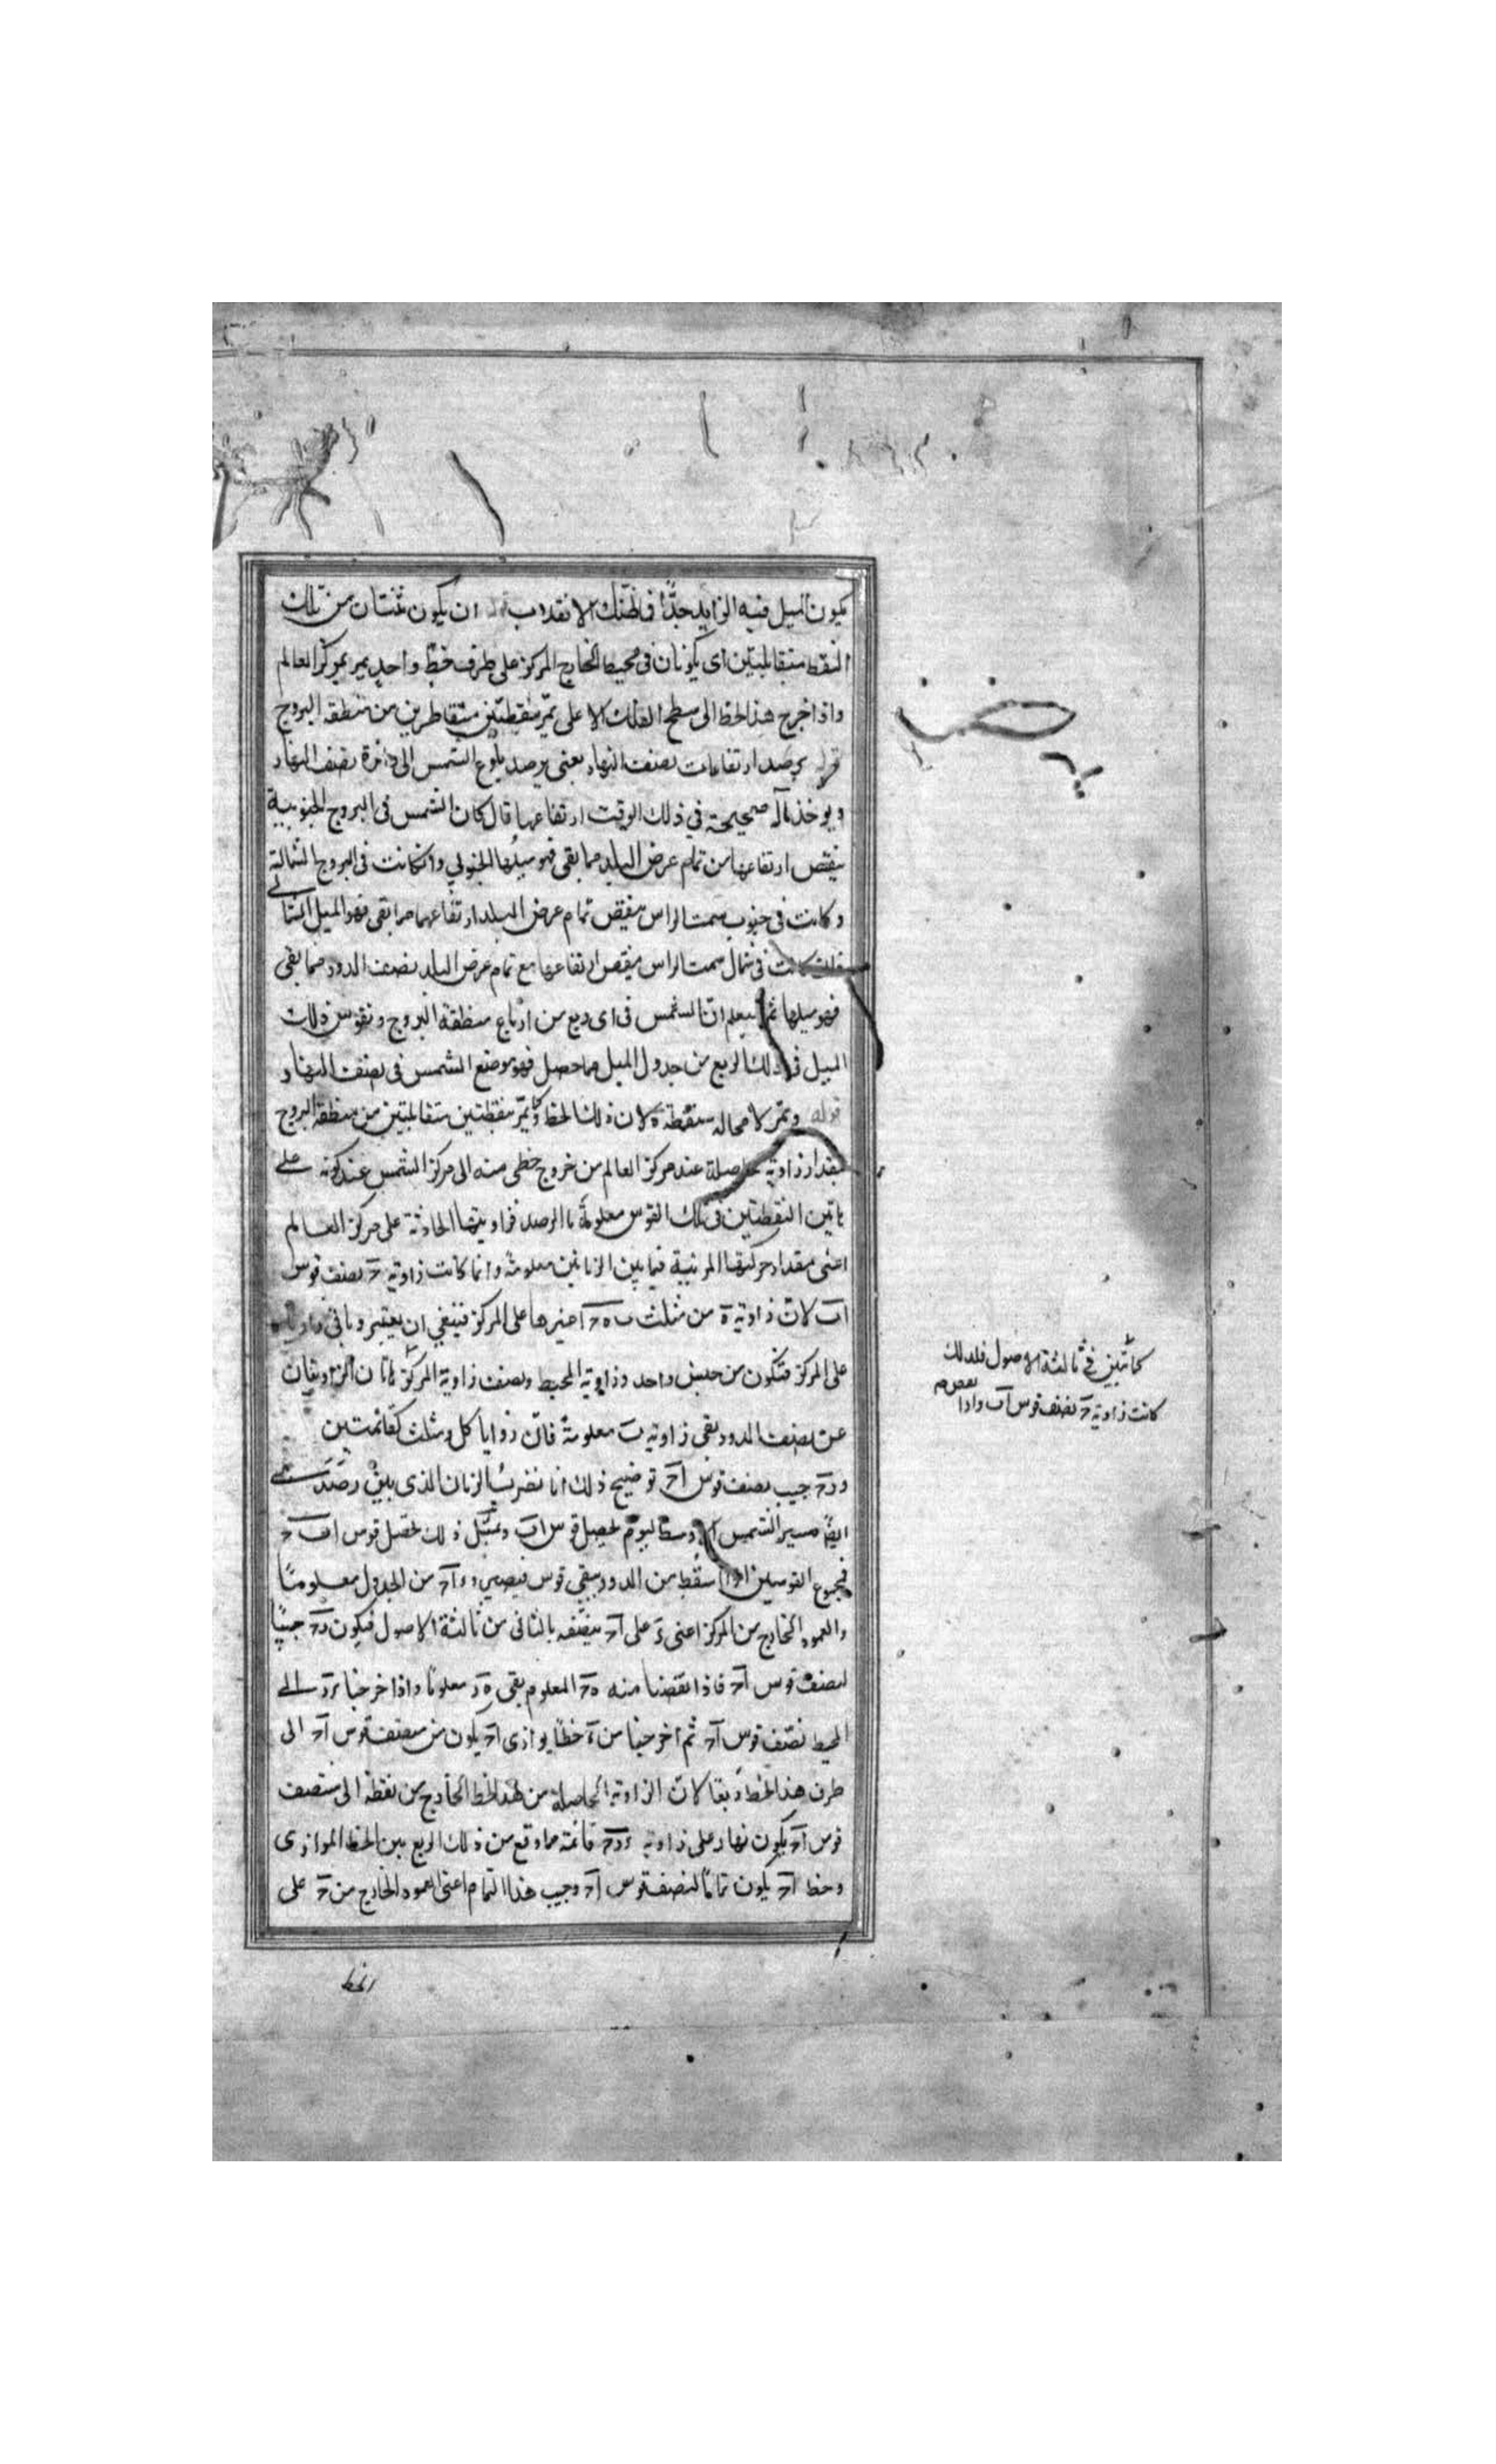 يكون الميل فيه الزايد جدًّا فما ظنك الانقلاب قوله ان يكون ثنتان من تلك
النقط متقابلتين اى يكونان فى محيط الخارج المركز على طرف خطّ واحد يمر بمركز العالم
واذا اخرج هذا الخط الى سطح الفلك الاعلى يمرّ بنقطتين متقاطرتين من منطقة البروج
قوله يرصد ارتفاعات نصف النهار يعنى يرصد بلوغ الشمس الى دائرة نصف النهار
ويوخذ بآلة صحيحة في ذلك الوقت ارتفاعها فان كان الشمس فى البروج الجنوبية
ينقص ارتفاعها من تمام عرض البلد مما بقى فهو ميلها الجنوبي وان كانت فى البروج الشمالية
وكانت فى جنوب سمت الراس ينقص تمام عرض البلد ارتفاعها مما بقى فهو الميل الشمالي
كانت فى شمال سمت الراس ينقص ارتفاعها مع تمام عرض البلد نصف الدور مما بقى
فهو ميلها ثم يعلم انّ الشمس فى اى ربع من ارباع منطقة البروج ونقوس ذلك
الميل فى ذلك الربع من جدول الميل مما حصل فهو موضع الشمس فى نصف النهار
قوله ويمرّ لا محالة بنقطة ه لان ذلك الخط يمرّ بنقطتين متقابلتين من منطقة البروج
بمقدار زاوية حاصلة عند مركز العالم من خروج خطى منه الى مركز الشمس عند كونه على
هاتين النقطتين فى تلك القوس معلومة بالرصد فزاويتها الحادثة على مركز العالم
اعنى مقدار حركتها المرئية فيما بين الزمانين معلومة وانما كانت زاوية ح نصف قوس
اب لانّ زاوية ه من مثلث ب ه ح اخيرها على المركز فينبغي ان يعتبر
على المركز فتكون من جنس واحد وزاوية المحيط ونصف زاوية المركز الزاويتان
عن نصف الدور بقى زاوية ب معلومة فانّ زوايا كل مثلث كقائمتين
ور ح جيب نصف قوس اح توضيح ذلك انا نضرب الزمان الذى بين رصدى
ايضًا مسير الشمس وسط اليوم ليحصل قوس اب وبمثل ذلك تحصل قوس ب ح
فمجموع القوسين اذا سقط من الدور يبقى قوس فيصير وتر اح من الجدول معلومًا
والعمود الخارج من المركز اعنى ء على اح ينصّفه بالثانى من ثالثة الاصول فيكون رح جيبًا
لنصف قوس اح فاذا نقصنا منه ه ح المعلوم بقى ه ر معلومًا واذا اخرجنا ء ر الى
المحيط نصّف قوس اح ثم اخرجنا من ء خطًا يوازى اح يكون من منتصف قوس اح الى
طرف هذا الخط ربعًا لانّ الزاوية الحاصلة من هذا الخط الخارج من نقطة الى منتصف
قوس اح يكون نهار على زاوية ء ر ح قائمة مما وقع من ذلك الربع بين الخط الموازى
وخط اح يكون تمامًا لنصف قوس اح وجيب هذا التمام اعنى العمود الخارج من ح على
الخط
كما تبين فى ثالثة الاصول فلذلك
كانت زاوية ح نصف قوس اب واذا